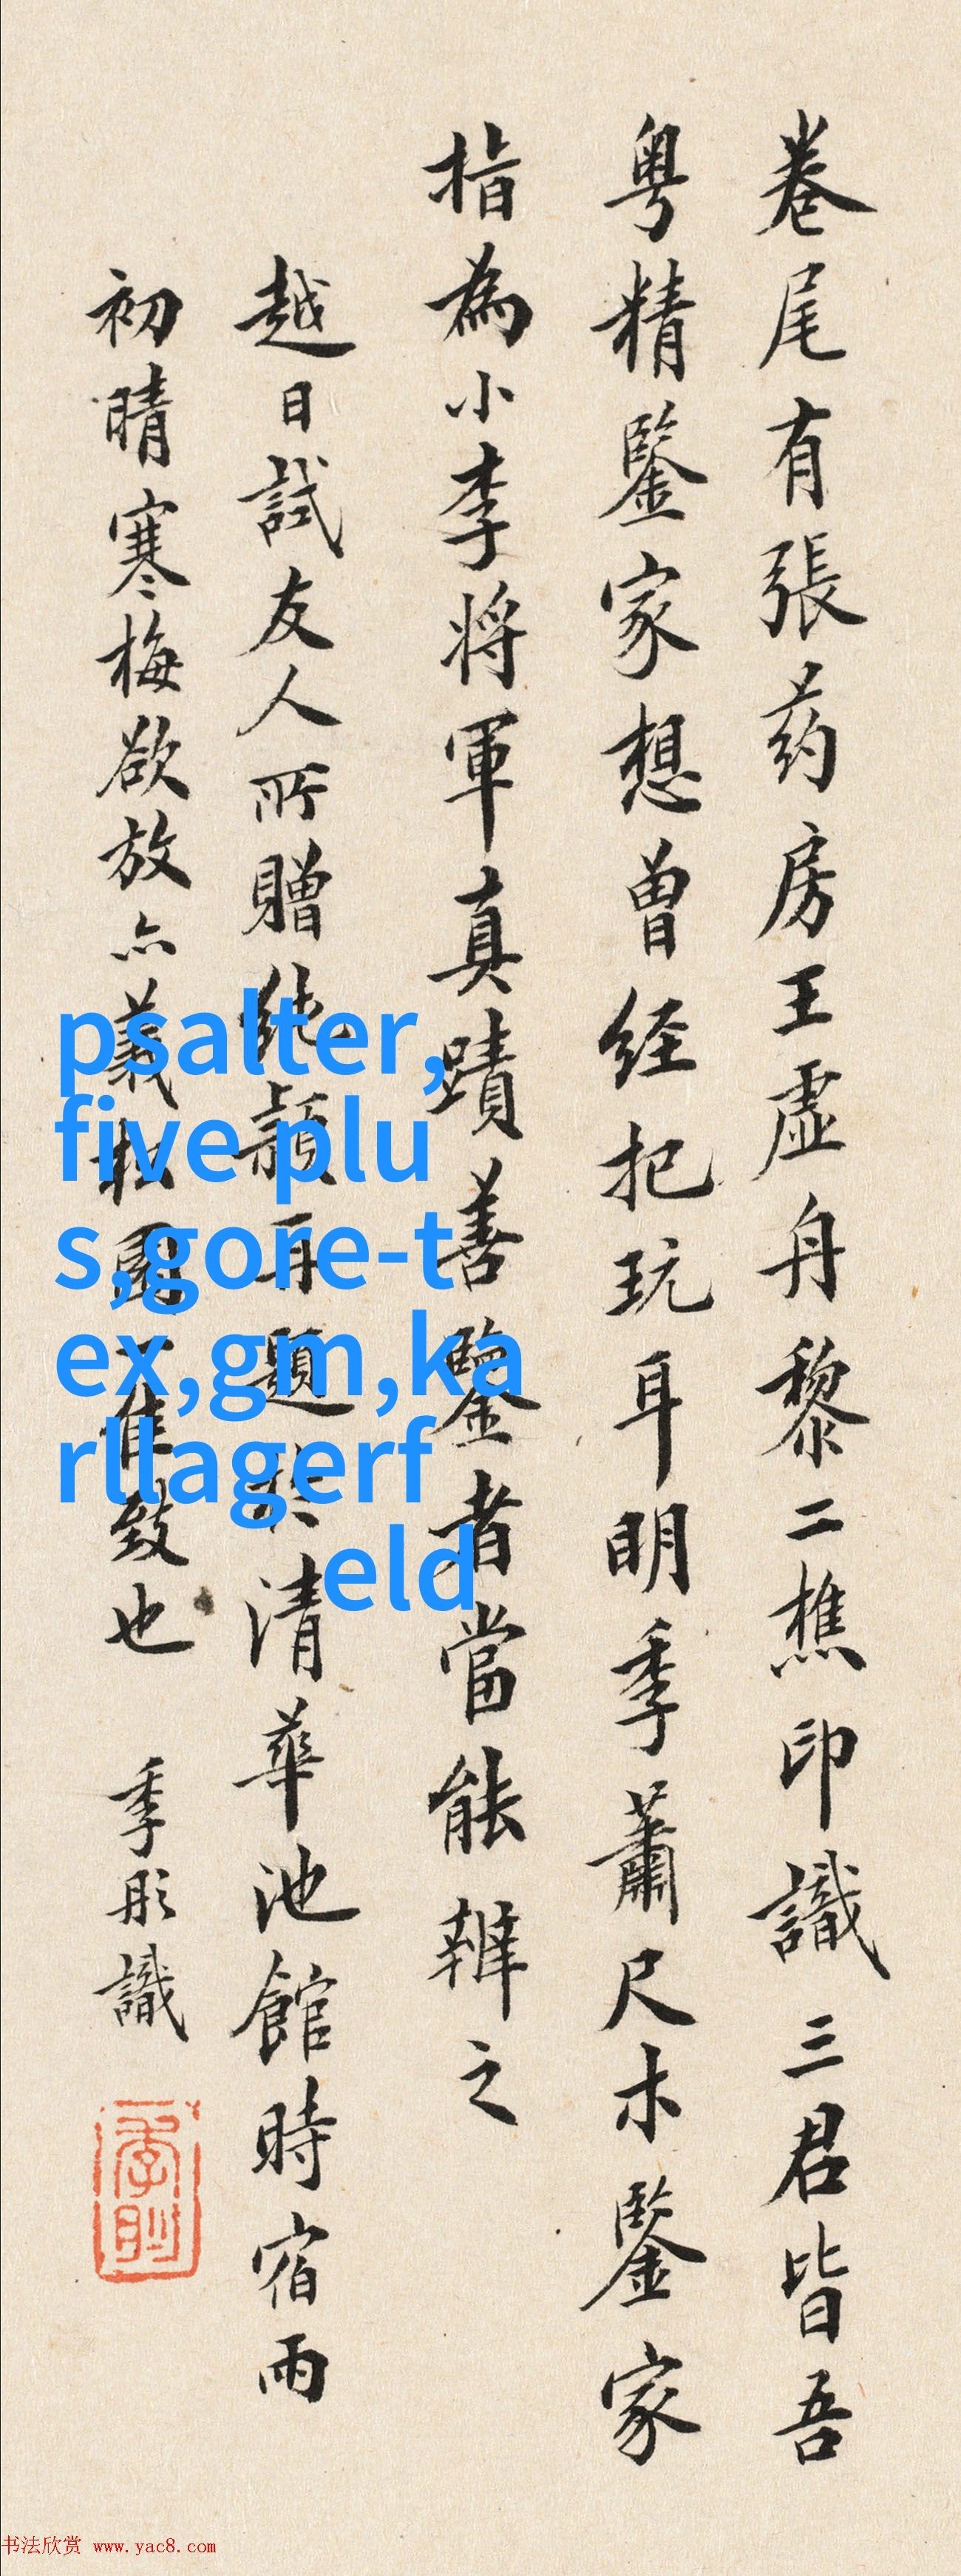 卷尾有張药房王虛舟黎二樵印識三君皆吾
粤精鑒家想曾經把玩耳明季蕭尺木鑒家
指為小李将軍真蹟善鑒者當能辨之
越日試友人所贈純穎再題於清華池館時宿雨
初晴寒梅欲放亦義松園一佳致也 季彤識
psalter,
five plu
s,gore-t
ex,gm,ka
rllagerf
eld
书法欣赏 www.yac8.com